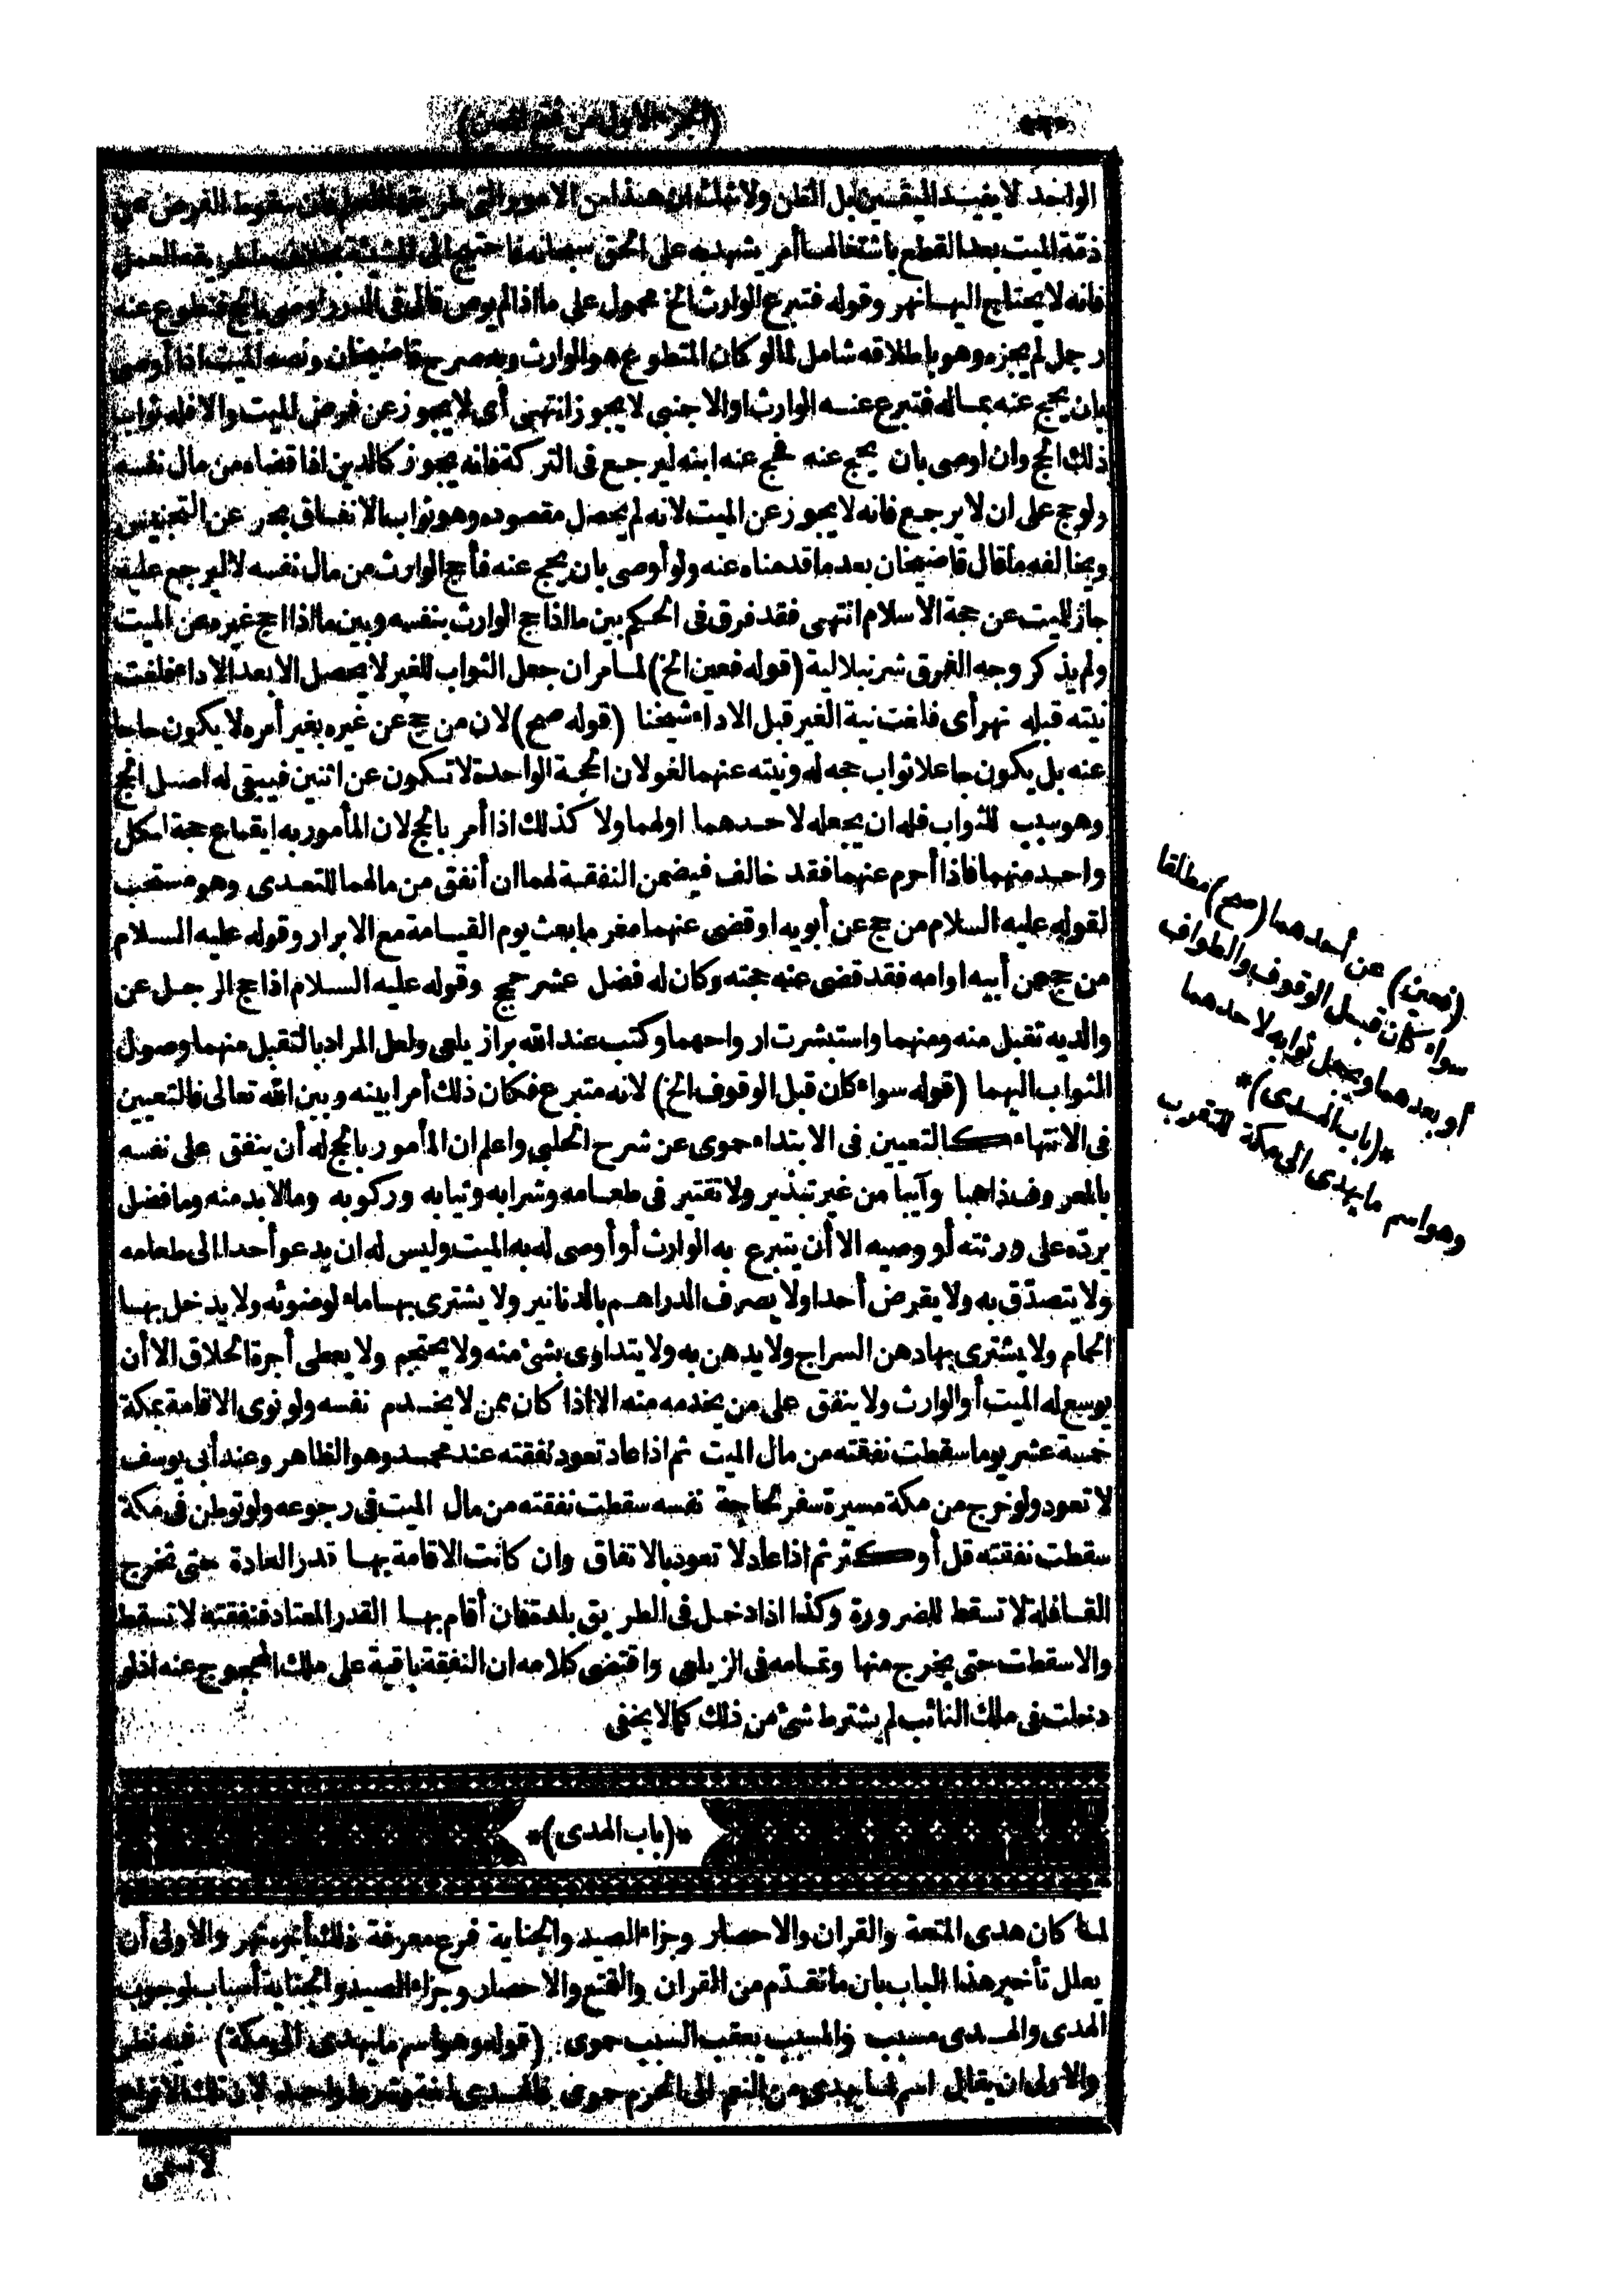 (الجزء الاول من فتح المعين)
الواحد لا يفيد اليقين بل الظن ولا شك ان هذا من الامور التى طريقها العلم فان سقوط الفرض عن
ذمّة الميت بعد القطع باشتغالها أمر يشهد به على الحق سبحانه فاحتيج الى المشيئة بخلاف ما طريقه العمل
فانه لا يحتاج اليها نهر وقوله فتبرع الوارث الخ محمول على ما اذا لم يوص قال فى الدرر اوصى بالحج فتطوع عنه
رجل لم يجزه وهو باطلاقه شامل لما لو كان المتطوع هو الوارث وبه صرح قاضيخان ونصه الميت اذا أوصى
بان يحج عنه بماله فتبرع عنه الوارث او الاجنبى لا يجوز انتهى أى لا يجوز عن فرض الميت والا فله ثواب
ذلك الحج وان اوصى بان يحج عنه فحج عنه ابنه ليرجع فى التركة فانه يجوز كالدين اذا قضاه من مال نفسه
ولو حج على ان لا يرجع فانه لا يجوز عن الميت لانه لم يحصل مقصوده وهو ثواب الانفاق بحر عن التجنيس
ويخالفه ما قال قاضيخان بعد ما قدمناه عنه ولو أوصى بان يحج عنه فأحج الوارث من مال نفسه لا ليرجع عليه
جاز للميت عن حجة الاسلام انتهى فقد فرق فى الحكم بين ما اذا حج الوارث بنفسه وبين ما اذا احج غيره عن الميت
ولم يذكر وجه الفرق شرنبلالية (قوله فعين الخ) لما مر ان جعل الثواب للغير لا يحصل الا بعد الاداء فلغت
نيته قبله نهر أى فلغت نية الغير قبل الاداء شيخنا (قوله صح) لان من حج عن غيره بغير أمره لا يكون حاجا
عنه بل يكون جاعلا ثواب حجه له ونيته عنهما لغو لان الحجة الواحدة لا تكون عن اثنين فيبقى له اصل الحج
وهو سبب للثواب فله ان يجعله لاحدهما او لهما ولا كذلك اذا أمر بالحج لان المأمور به ايقاع حجة لكل
واحد منهما فاذا أحرم عنهما فقد خالف فيضمن النفقة لهما ان أنفق من مالهما للتعدى وهو مستحب
لقوله عليه السلام من حج عن أبويه او قضى عنهما مغرما بعث يوم القيامة مع الابرار وقوله عليه السلام
من حج عن أبيه او امه فقد قضى عنه حجته وكان له فضل عشر حجج وقوله عليه السلام اذا حج الرجل عن
والديه تقبل منه ومنهما واستبشرت ارواحهما وكتب عند الله برا زيلعى ولعل المراد بالتقبل منهما وصول
الثواب اليهما (قوله سواء كان قبل الوقوف الخ) لانه متبرع فكان ذلك أمرا بينه وبين الله تعالى فالتعيين
فى الانتهاء كالتعيين فى الابتداء حموى عن شرح الحلبى واعلم ان المأمور بالحج له أن ينفق على نفسه
بالمعروف ذاهبا وآيبا من غير تبذير ولا تقتير فى طعامه وشرابه وثيابه وركوبه ومالا بد منه وما فضل
يردّه على ورثته أو وصيه الا أن يتبرع به الوارث أو أوصى له به الميت وليس له ان يدعو أحدا الى طعامه
ولا يتصدّق به ولا يقرض أحدا ولا يصرف الدراهم بالدنانير ولا يشترى بها ماء لوضوئه ولا يدخل بها
الحمام ولا يشترى بها دهن السراج ولا يدهن به ولا يتداوى بشئ منه ولا يحتجم ولا يعطى أجرة الحلاق الا أن
يوسع له الميت أو الوارث ولا ينفق على من يخدمه منه الا اذا كان ممن لا يخدم نفسه ولو نوى الاقامة بمكة
خمسة عشر يوما سقطت نفقته من مال الميت ثم اذا عاد تعود نفقته عند محمد وهو الظاهر وعند أبى يوسف
لا تعود ولو خرج من مكة مسيرة سفر لحاجة نفسه سقطت نفقته من مال الميت فى رجوعه ولو توطن فى مكة
سقطت نفقته قل أو كثر ثم اذا عاد لا تعود بالاتفاق وان كانت الاقامة بها قدر العادة حتى تخرج
القافلة لا تسقط للضرورة وكذا اذا دخل فى الطريق بلدة فان أقام بها القدر المعتاد فنفقته لا تسقط
والا سقطت حتى يخرج منها وتمامه فى الزيلعى واقتضى كلامه ان النفقة باقية على ملك المحجوج عنه اذ لو
دخلت فى ملك النائب لم يشترط شئ من ذلك كما لا يخفى
*(باب الهدى)*
لما كان هدى المتعة والقران والاحصار وجزاء الصيد والجناية فرع معرفة ذلك أخره نهر والاولى أن
يعلل تأخير هذا الباب بان ما تقدّم من القران والتمتع والاحصار وجزاء الصيد والجناية أسباب لوجوب
الهدى والهدى مسبب والمسبب يعقب السبب حموى (قوله وهو اسم ما يهدى الى مكة) فيه نظر
والاولى ان يقال اسم لما يهدى من النعم الى الحرم حموى فالهدى لغة وشرعا واحد لان تلك الانواع
لا تسمى
(فعين) عن أحدهما (صح) مطلقا
سواء كان قبل الوقوف والطواف
أو بعدهما ويجعل ثوابه لاحدهما
*(باب الهدى)*
وهو اسم ما يهدى الى مكة للتقرب